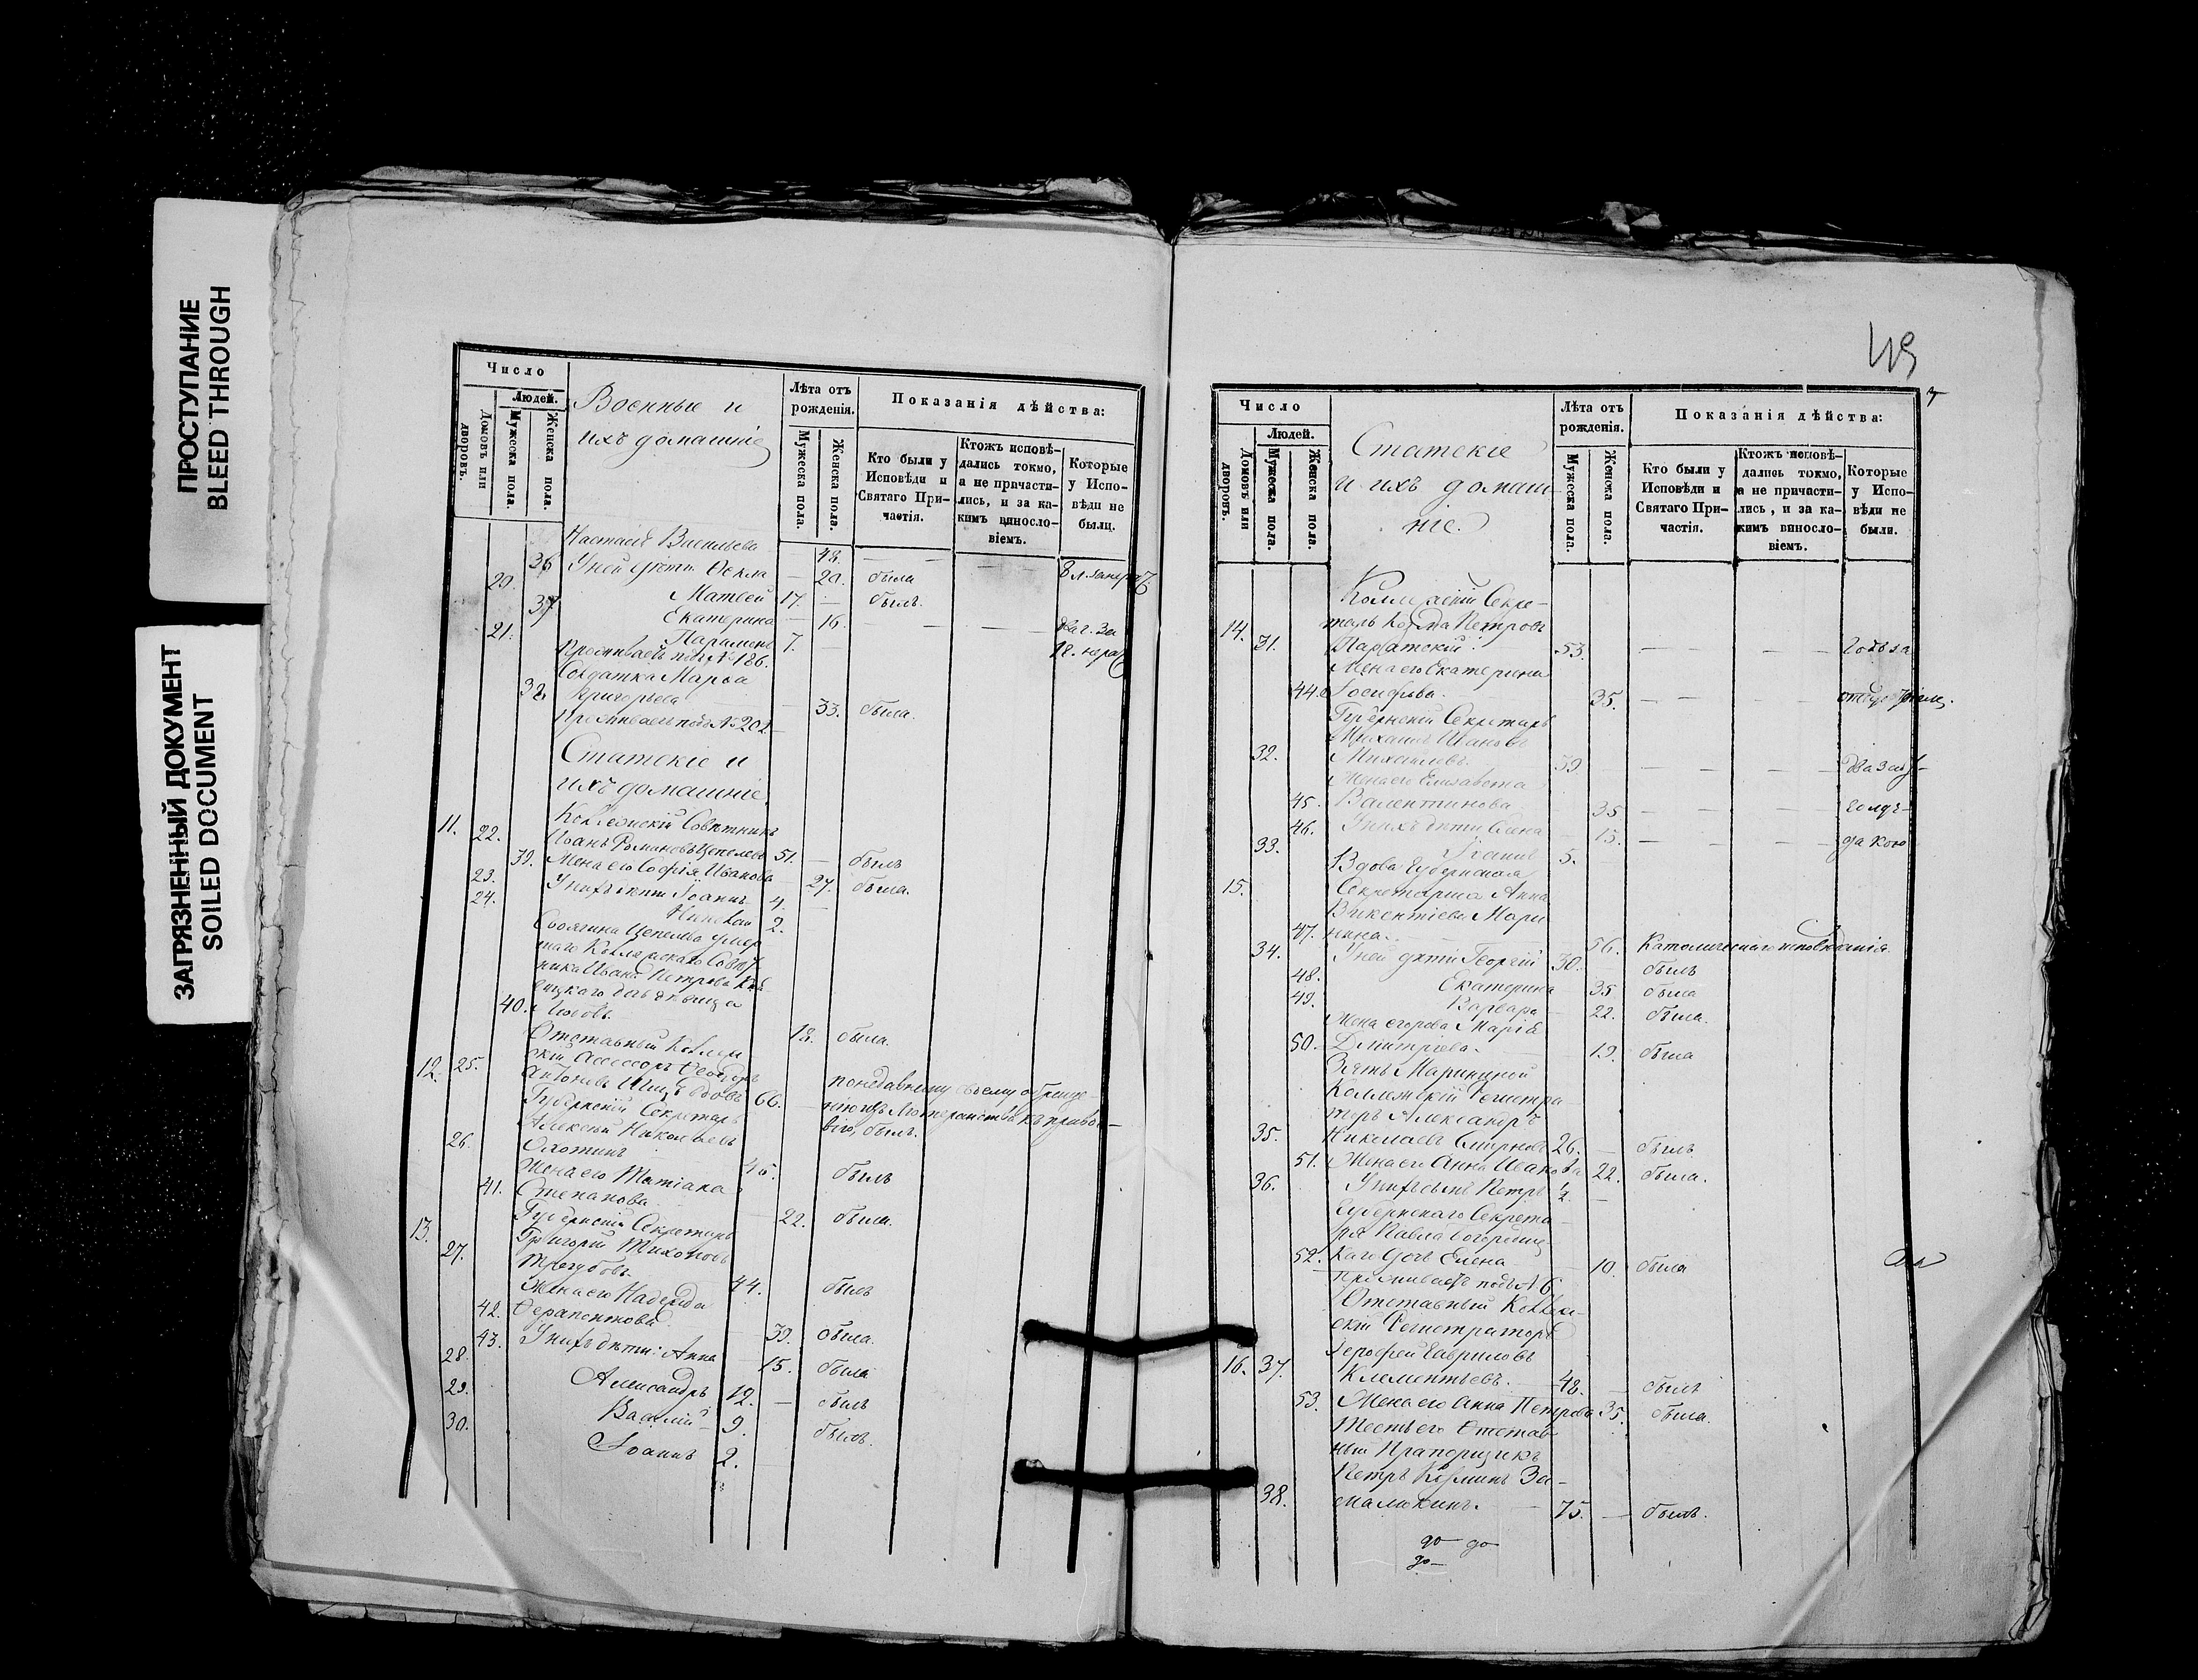 ПРОСТУПАНИЕ
BLEED THROUGH
ЗАГРЯЗНЕННЫЙ ДОКУМЕНТ
SOILED DOCUMENT
Число
Людей.
Домовъ или дворовъ.
Мужеска пола.
Женска пола.
Военные и
ихъ домашніе
Лѣта отъ рожденія.
Мужеска пола.
Женска пола.
Показанія дѣйства:
Кто были у Исповѣди и Святаго Причастія.
Ктожъ исповѣдались токмо, а не причастились, и за какимъ винословіемъ.
Которые у Исповѣди не были.
Настасья Васильева 48.
36 У ней дѣти Ѳекла 20. была
20. Матвей 17. былъ.
37 Екатерина 16.
21. Парамонъ 7.
Проживаетъ подъ № 186.
Солдатка Марѳа
38. Григорьева 33. была.
Проживаетъ подъ № 202
Статскіе и
ихъ домашніе.
11. Коллежскій Совѣтникъ
22. Иванъ Романовъ Цепелевъ 51. былъ
39. Жена его Софія Иванова 27. была.
23. У нихъ дѣти Іоаннъ 4.
24. Николай 2.
40. Любовь 18. была.
Отставный Коллеж
12. 25. скій Асессоръ Ѳеодоръ
66.
Губернскій Секретарь
Алексѣй Николаевъ
26. Охотинъ 45. былъ
Жена его Татіана
41. Степанова 22. была.
13. Губернскій Секретарь
27. Григорій Тихоновъ
Трегубовъ 44. былъ
Жена его Надежда
42. Ѳерапонтова 39. была.
43. У нихъ дѣти: Анна 15. была
28. Александръ 12. былъ
29. Василій 9. былъ.
30. Іоаннъ 2.
49
Число
Людей.
Домовъ или дворовъ.
Мужеска пола.
Женска пола.
Статскіе
и ихъ домаш
ніе.
Лѣта отъ рожденія.
Мужеска пола.
Женска пола.
Показанія дѣйства:
Кто были у Исповѣди и Святаго Причастія.
Ктожъ исповѣдались токмо, а не причастились, и за какимъ винословіемъ.
Которые у Исповѣди не были.
Коллежскій Секре-
14. тарь Козма Петровъ
31. 53.
Жена его Екатерина
44. Іосифова. 35.
Губернскій Секретарь
Михаилъ Ивановъ
32. Михайловъ 39
Жена его Елизавета
45. Валентинова 35
46. У нихъ дѣти Елена 15.
33. Іоаннъ 5.
Вдова Губернская
15. Секретарша Анна
Викентіева Мари
47. нина. 56. Католическаго исповѣданія
34. У ней дѣти Георгій 30. былъ
48. Екатерина 35 была
49. Варвара 22. была.
Жена Егорова Марія
50. Дмитріева. 19. была
Зять Марининой
Коллежскій Регистра
торъ Александръ
35. Николаевъ Смирновъ 26. былъ
51. Жена его Анна Иванова 22. была.
36. У нихъ сынъ Петръ 1/2.
Губернскаго Секрета
ря Павла
52. каго дочь Елена 10. была
Проживаетъ подъ № 6
Отставный Коллеж-
скій Регистраторъ
Іерофей Гавриловъ
16. 37. Климентьевъ. 48. былъ
53. Жена его Анна Петрова 35. была.
Тесть его Отстав
ный Прапорщикъ
Петръ Козминъ За-
38. малюкинъ. 75. былъ.